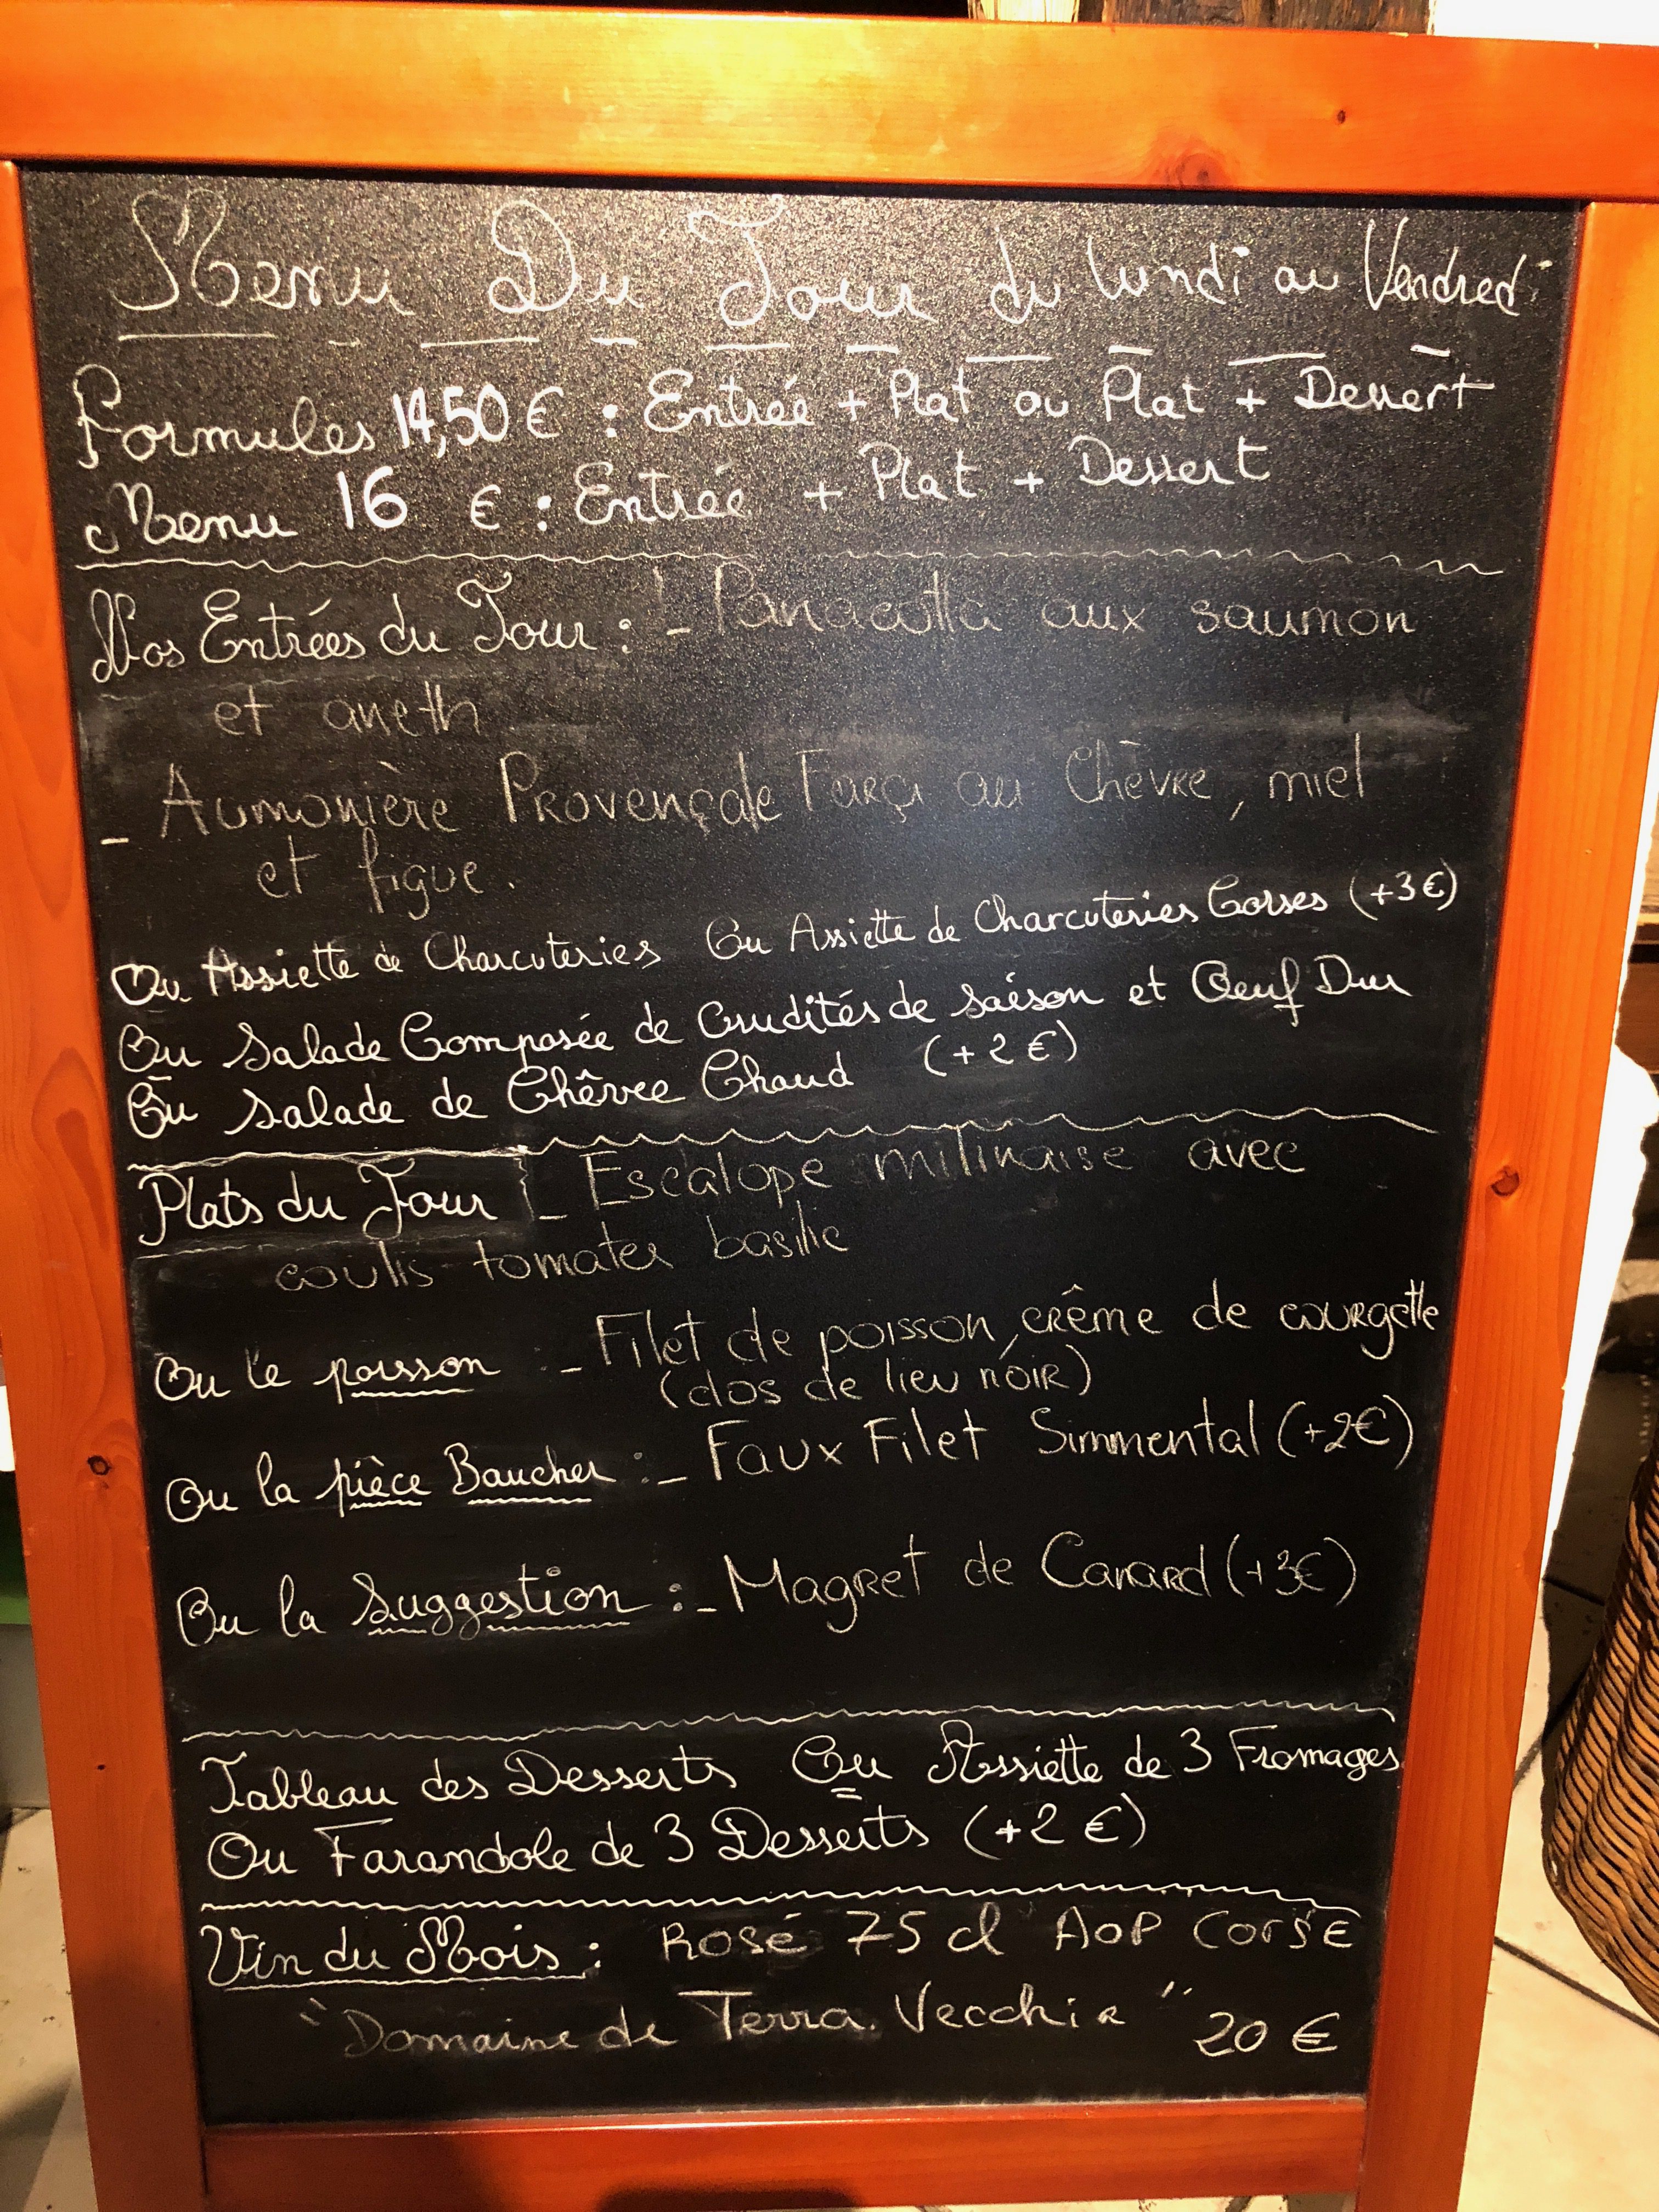 Menu Du Jour du lundi au Vendredi
Formules 14,50 € : Entrée + Plat ou Plat + Dessert
Menu 16 € : Entrée + Plat + Dessert
Nos Entrées du Jour : - Panacotta aux saumon
et aneth
- Aumonière Provençale Farçi au Chèvre, miel
et figue.
Ou Assiette de Charcuteries Ou Assiette de Charcuteries Corses (+3€)
Ou Salade Composée de Crudités de Saison et Oeuf Dur
Ou Salade de Chêvre Chaud (+2€)
Plats du Jour - Escalope milinaise avec
coulis tomates basilic
Ou le poisson : - Filet de poisson, crême de courgette
(dos de lieu noir)
Ou la pièce Baucher : - Faux Filet Simmental (+2€)
Ou la Suggestion : - Magret de Canard (+3€)
Tableau des Desserts Ou Assiette de 3 Fromages
Ou Farandole de 3 Desserts (+2€)
Vin du Mois : Rosé 75 cl AOP Corse
"Domaine de Terra Vecchia" 20 €